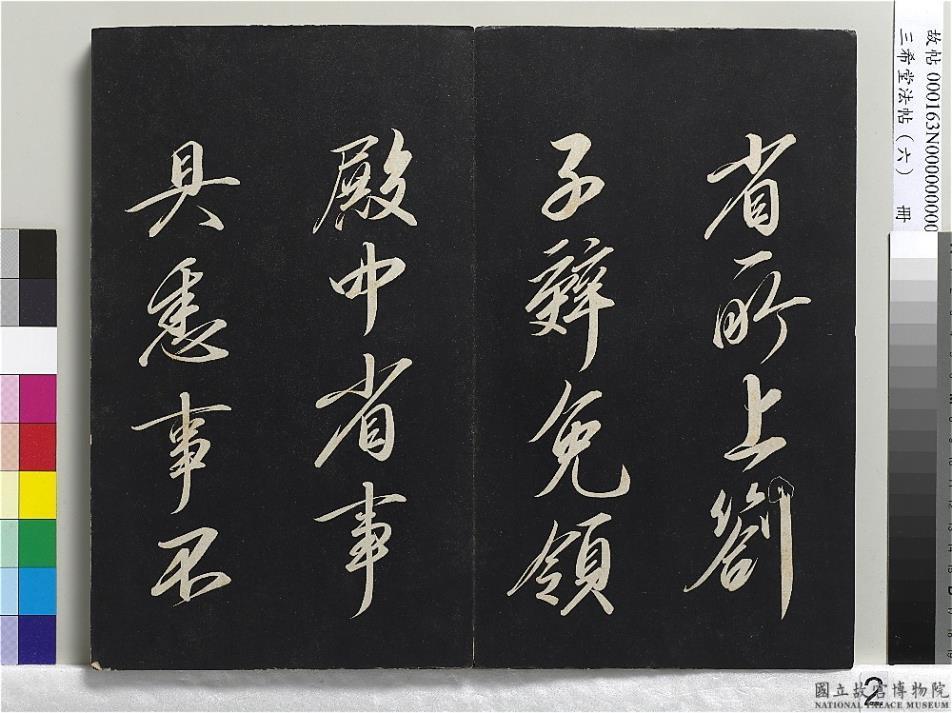 省所上劄
子辭免領
殿中省事
具悉事不
故帖 000163N000000000
三希堂法帖(六) 冊
2
國立故宮博物院
NATIONAL PALACE MUSEUM